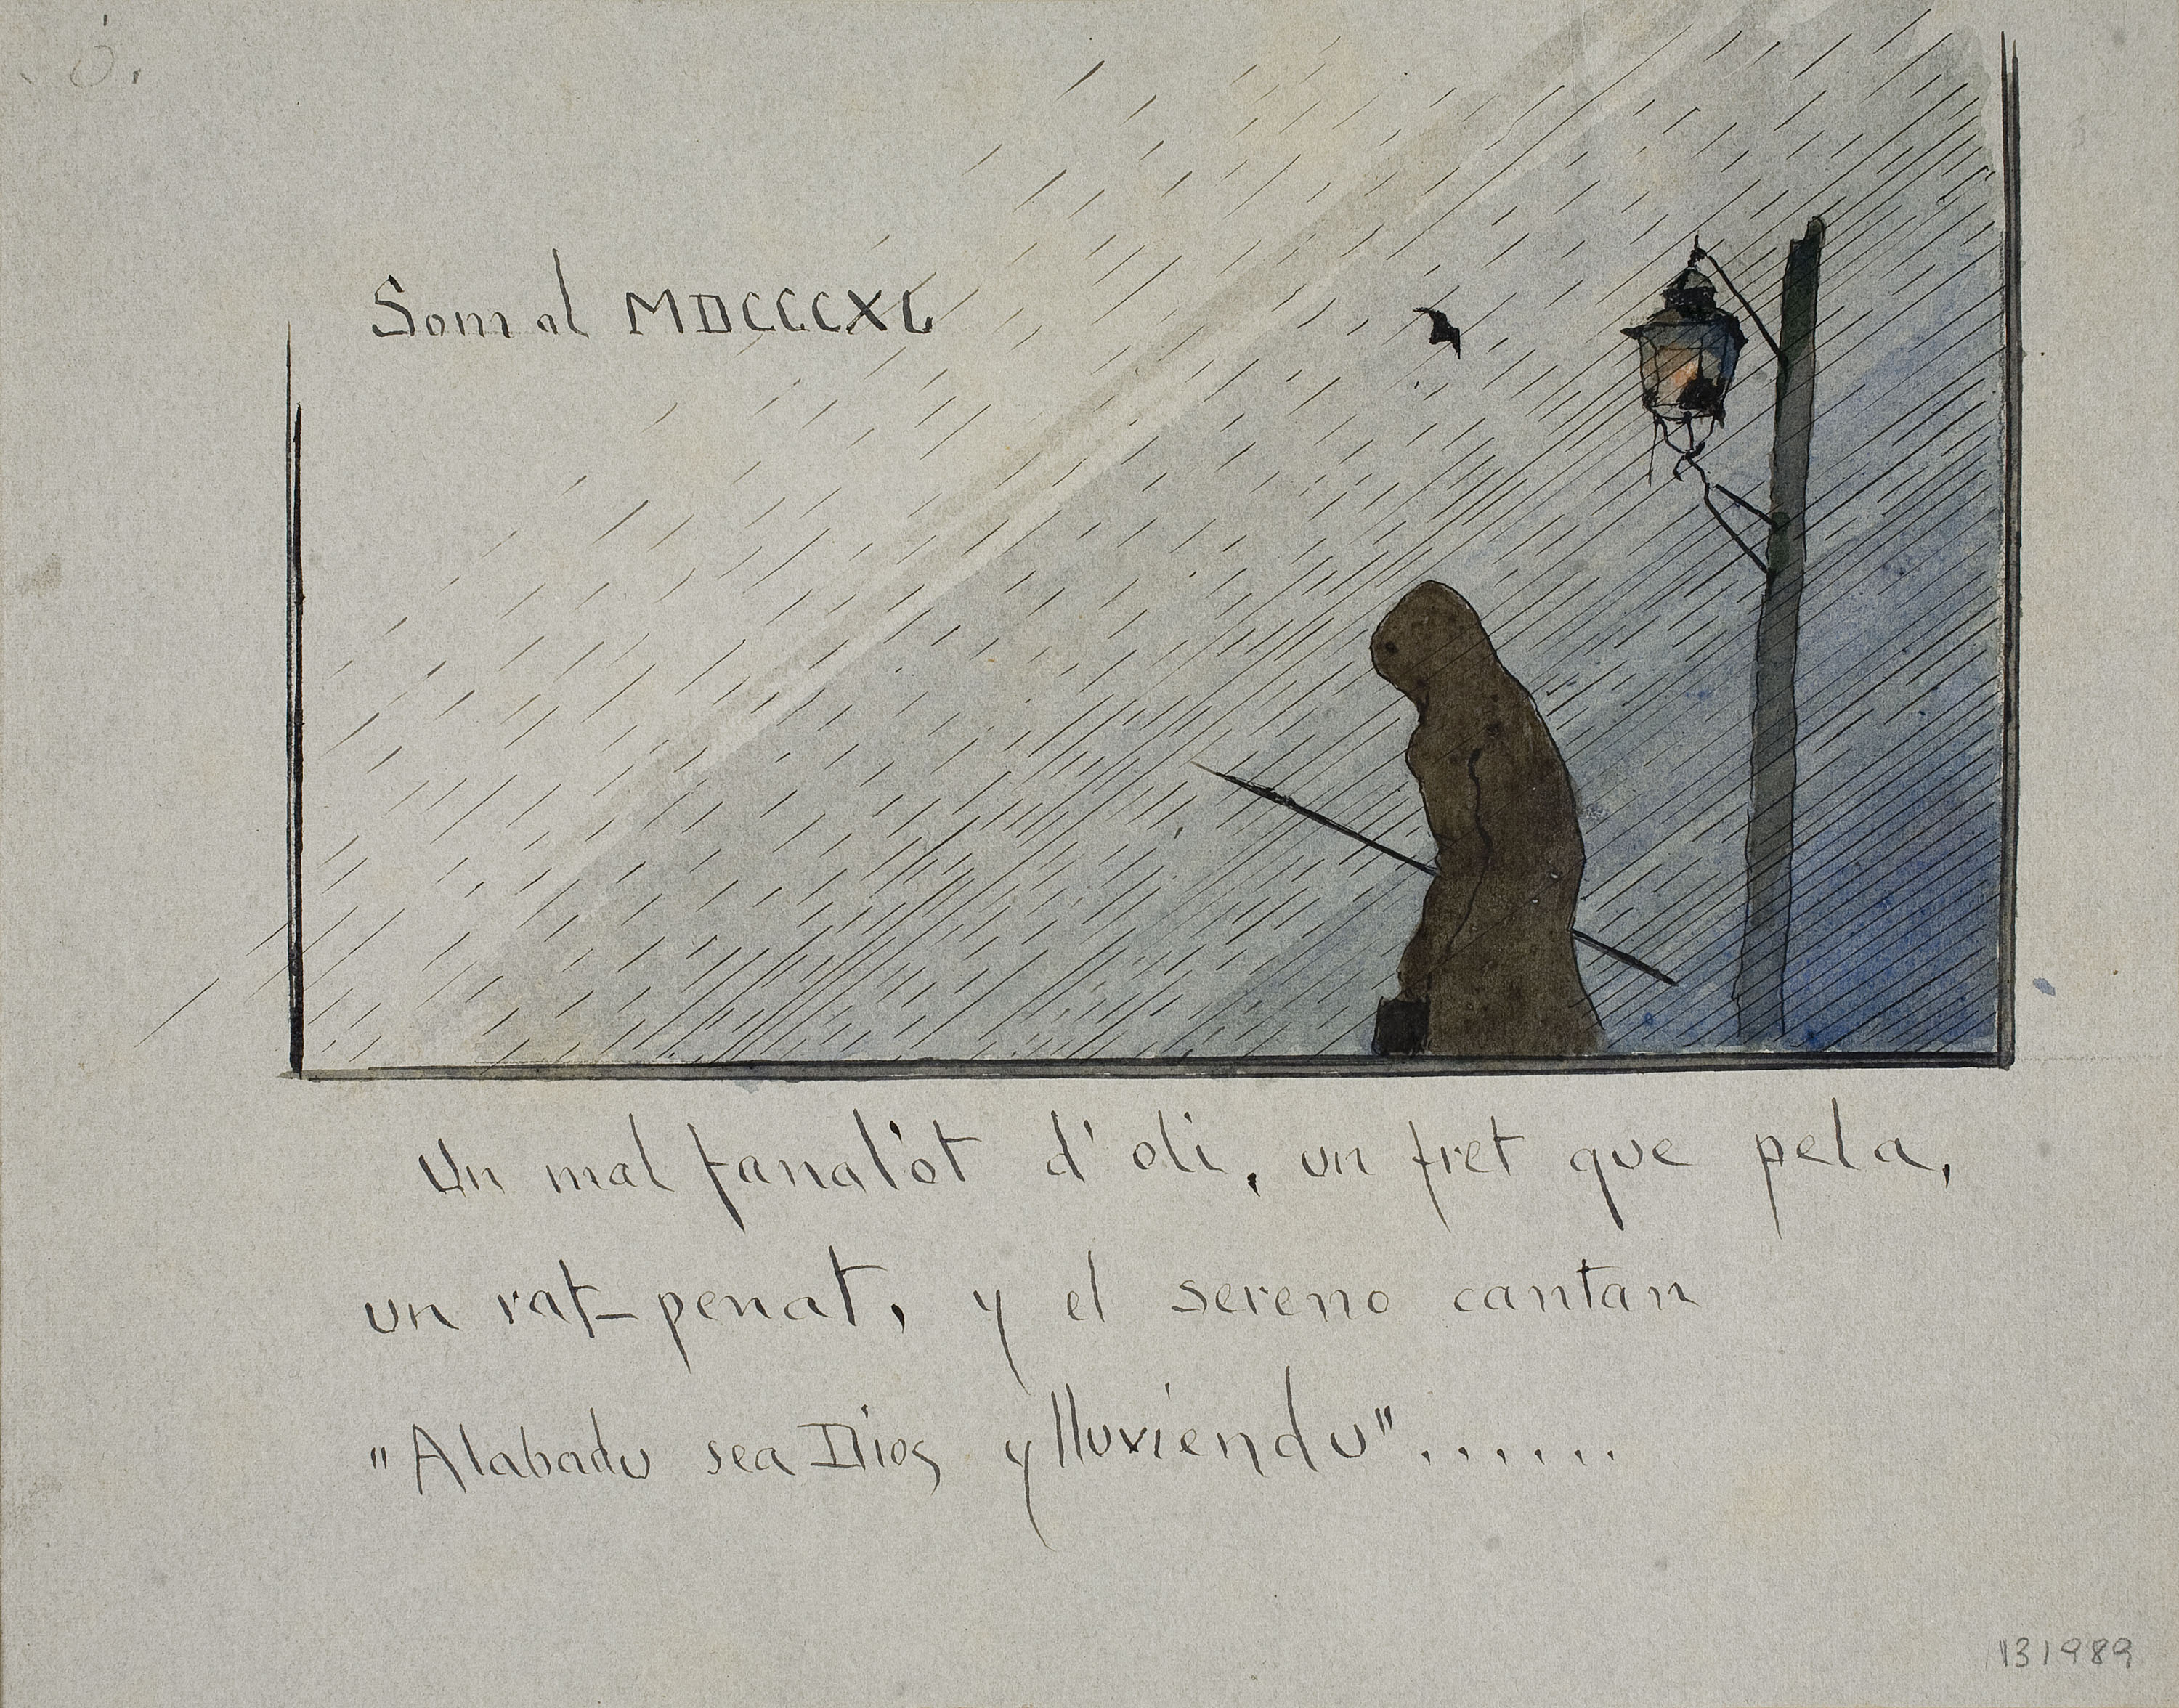 6.
Som al MDCCCXL
Un mal fanal'ot d'oli, un fret que pela,
un rat-penat, y el sereno cantan
"Alabadu sea Dios y lluviendu"......
131989